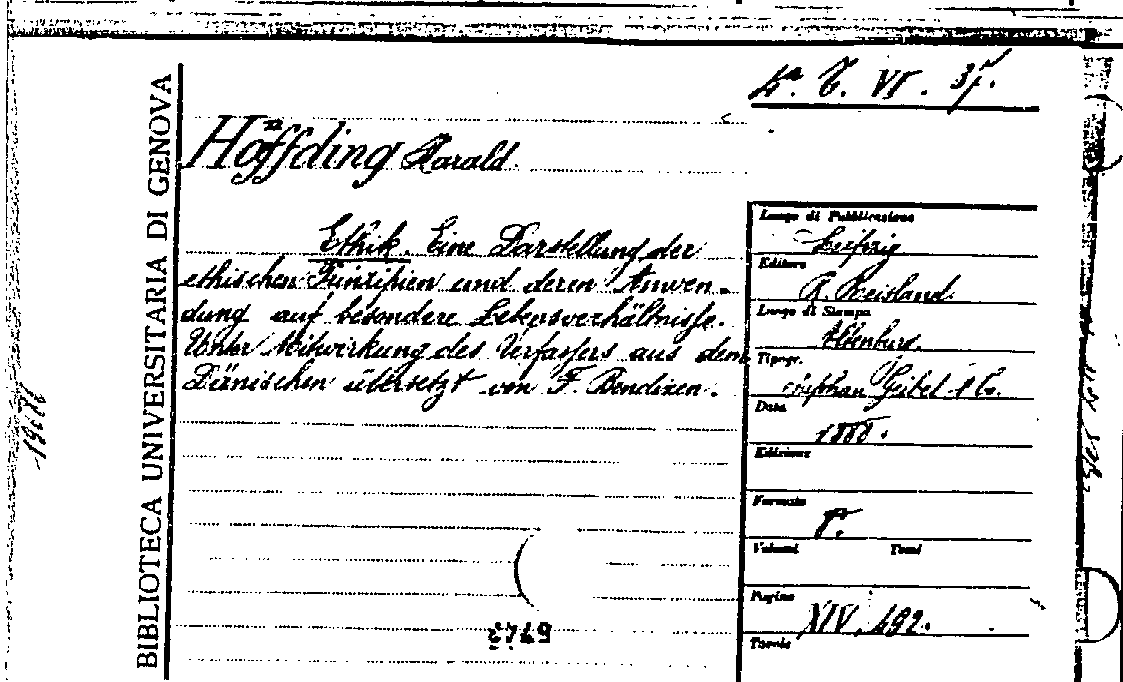 4ª. C. VI. 37.
BIBLIOTECA UNIVERSITARIA DI GENOVA
Höffding Harald.
Ethik. Eine Darstellung der
ethischen Prinzipien und deren Anwen-
dung auf besondere Lebensverhältnisse.
Unter Mitwirkung des Verfassers aus dem
Dänischen übersetzt von F. Bendixen.
Luogo di Pubblicazione
Leipzig
Editore
R. Reisland.
Luogo di Stampa
Altenburg.
Tipogr.
Stephan Geibel & Co.
Data
1888.
Edizione
Formato
8°.
Volumi Tomi
Pagine
XIV, 492.
Tavole